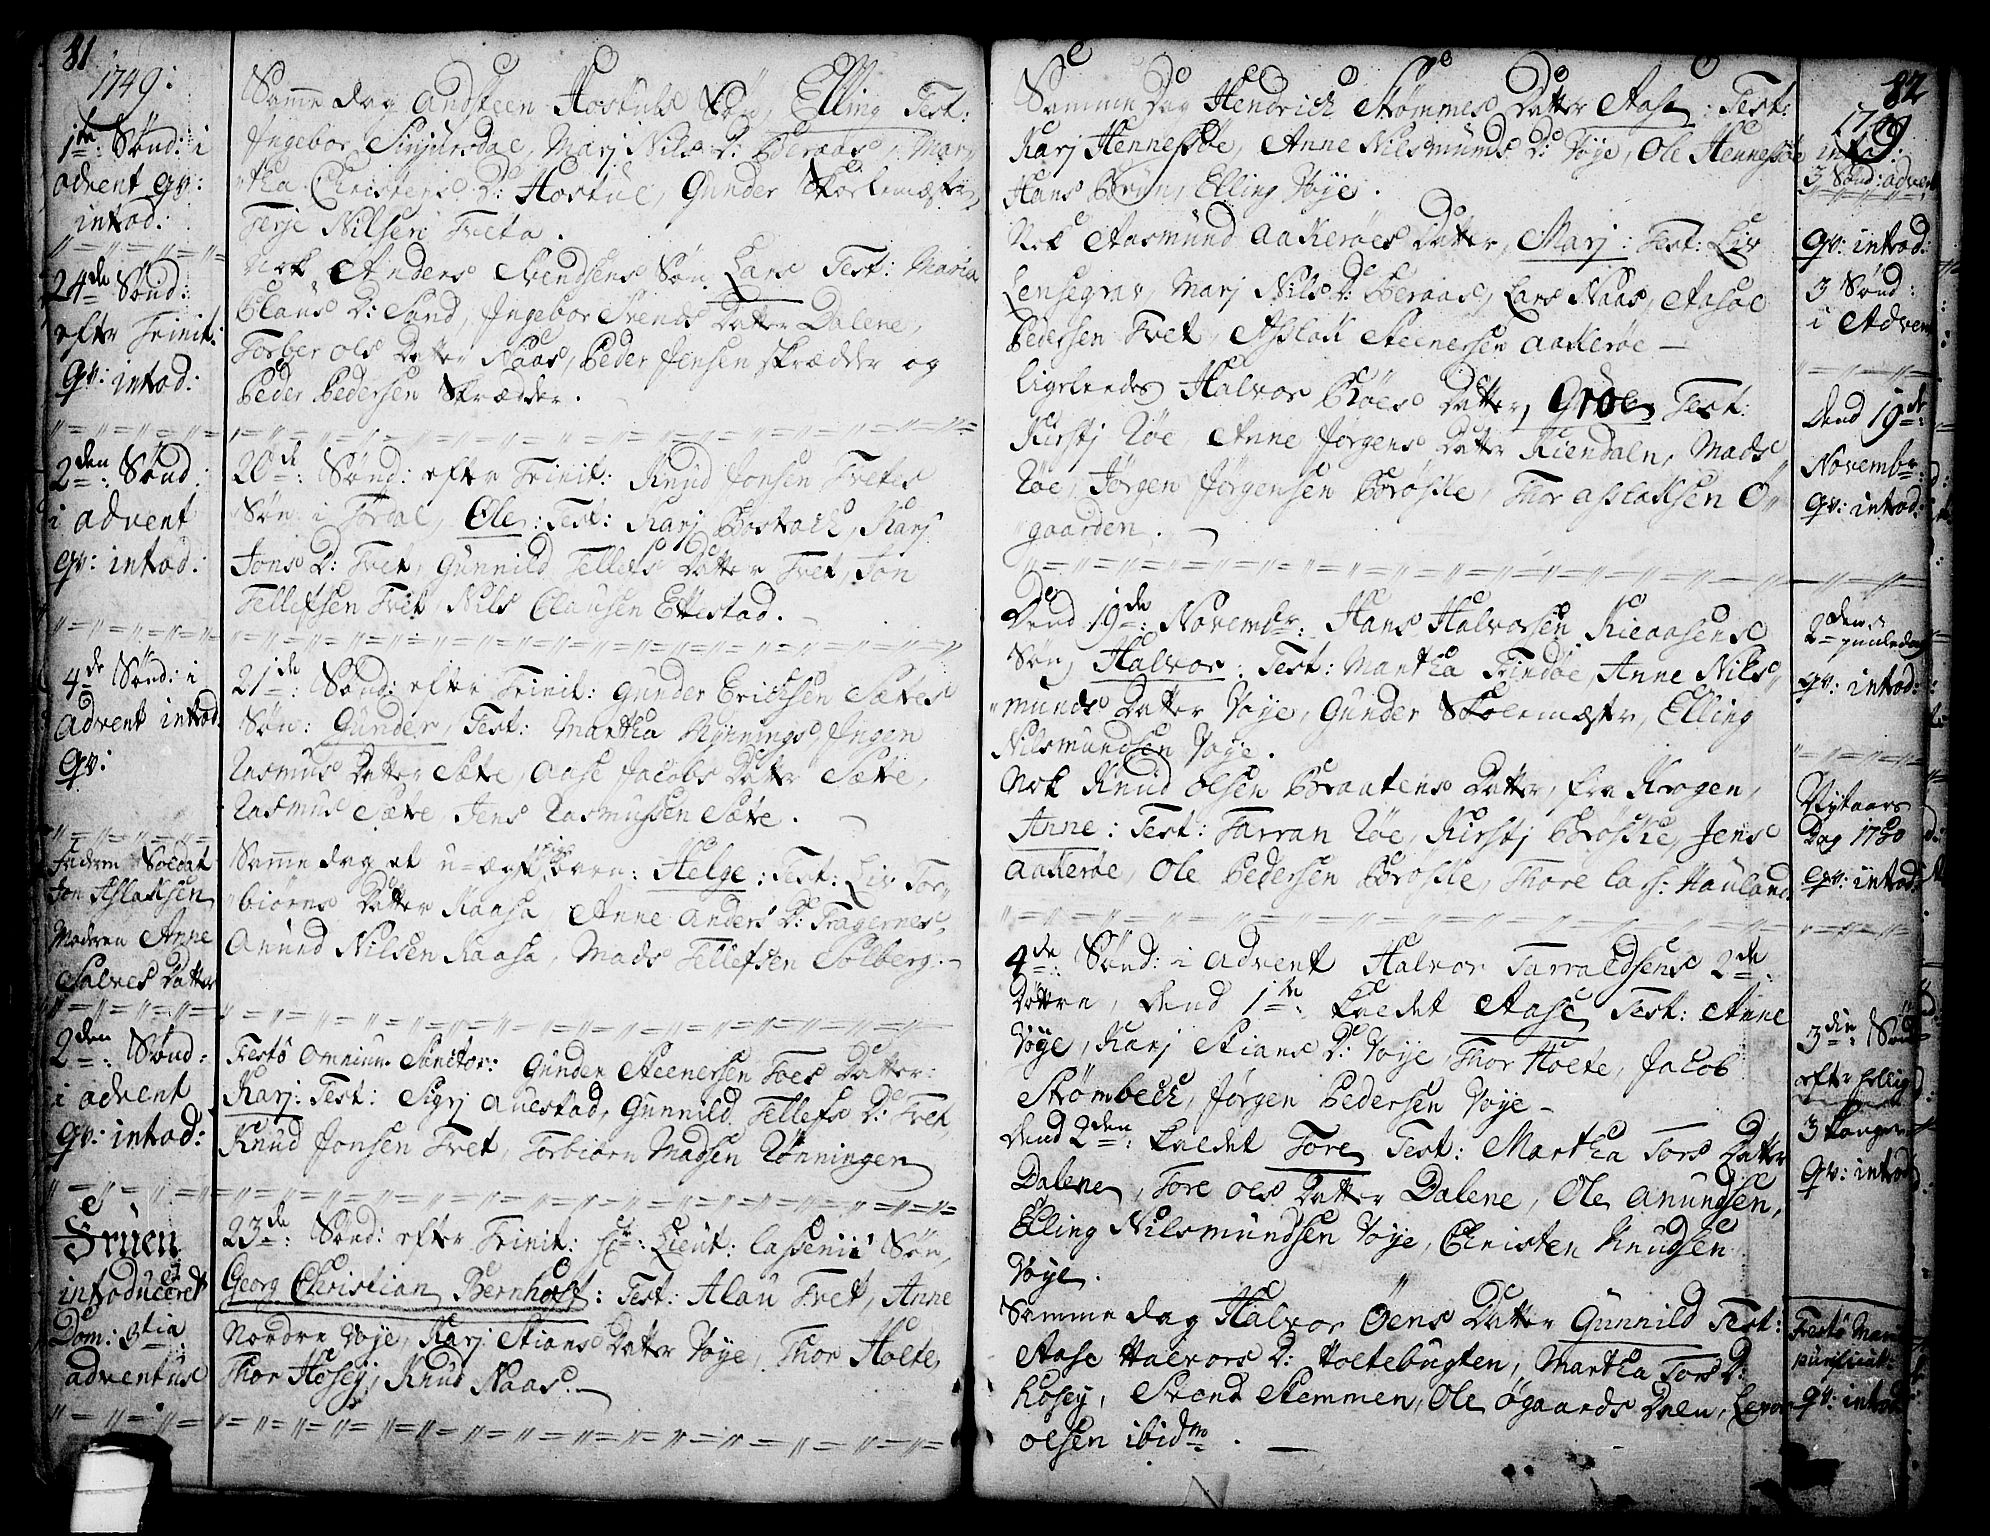 81
1749:
1te: Sønd: i
advent qv:
introd:
24de Sønd:
efter Trinit:
qv: introd:
2den Sønd:
i advent
qv: introd:
4de Sønd: i
advent introd
qv:
Fadren Soldat
Jon Aslaksen
Modren Anne
Salves Datter
2den Sønd:
i advent
qv: introd:
Fruen
introduceret
Dom: 3tia
adventus
Samme dag Andsteen Hostuls Søn, Elling Test:
Ingebor Sinjursdal, Marj Nils D: Beraas, Mar,,
,,tha Christens D: Hostul, Gunder Skolemæster,
Terje Nilsen Tveta.
Nok Anders Svendsens Søn Lars Test: Maria
Clauss D: Sand, Ingebor Svends Datter Dalene,
Torber ols Datter Naas, Peder Jensen skrædder og
Peder Pedersen Skrædder.
20de: Sønd: efter Trinit: Knud Jonsen Tvetes
Søn i Tordal, Ole: Test: Karj Bostach, Karj
Jons D: Tvet, Gunnild Tellefs Datter Tvet, Jon
Tellefsen Tvet, Nils Clausen Ettestad.
21de: Sønd: efter Trinit: Gunder Erichsen Sætres
Søn: Gunder, Test: Martha Rynnings Ingen
Rasmus Datter Sætre, Aase Jacobs Datter Sætre,
Rasmus Sætre, Jens Rasmussen Sætre.
Samme dag et u-ægte barn: Helge: Test: Liv Tor,,
,,biørns Datter Raasa, Anne Anders D: Tragernes,
Anund Nilsen Raasa, Mads Tellefsen Solberg.
Festo Omnium Sanctor: Gunder Steenersen Toes Datter:
Karj: Test: Sigrj Auestad, Gunnild Tellefs D: Tvet,
Knud Jonsen Tvet, Torbiørn Madsen Rønningen
23de: Sønd: efter Trinit: Hr: Lieut: Lassenii Søn,
Georg Christian Bernhoft: Test: Alau Tvet, Anne
Nordre Voje, Karj Stians Datter Voje, Thor Holte,
Thor Hosej, Knud Naas.
Samme Dag Hendrich Strømmes Datter Aase: Test:
Karj Hennesøe, Anne Nilsmunds D: Voje, Ole Hennesøe
Hans Bruun, Elling Voje.
Nok Aasmund Aakerøes Datter, Marj: Test: Liv
Lensegrav, Marj Nils D: Beraas, Lars Naas, Aasol
Pedersen Tvet, Aslak Steenersen Aakerøe
Ligeledes Halvor Røes Datter, Groe, Test:
Kirstj Røe, Anne Jørgens Datter Kiendalen, Mads
Røe, Jørgen Jørgensen Brøskie, Thor Aslaksen Ø,,
,,gaarden.
Dend 19de: Novembr: Hans Halvorsen Kieaasens
Søn, Halvor: Test: Martha Trindøe, Anne Nils,,
,,munds Datter Voje, Gunder Skolemæster, Elling
Nilsmundsen Voje.
Nok Knud Olsen Braatens Datter, fra Krogen,
Anne: Test: Tarran Røe, Kirstj Brøskie, Jens
Aakerøe, Ole Pedersen Brøskie, Thore Lars: Hauland.
4de: Sønd: i Advent Halvor Tarraldsens 2de:
Døttre, dend 1te: kaldet Aase Test: Anne
Voje, Karj Stians D: Voje, Thor Holte, Jacob
Strømbech, Jørgen Pedersen Voje
dend 2den: kaldet Tore Test: Martha Tors Datter
Dalene, Tore oles Datter Dalene, Ole Anundsen,
Elling Nilsmundsen Voje, Christen Knudsen
Voje.
Samme dag Halvor Øens Datter Gunnild Test:
Aase Halvors D: Holtebugten, Martha Tors D:
Hosej, Svend Stemmen, Ole Øgaards Dalen,
olsen ibidm.
82
1749
introd:
3 Sønd: advent
qv: introd:
3 Sønd:
i Advent
Dend 19de
Novembr:
qv: introd:
2den
juuledag
qv: introd:
Nytaars
Dag 1750
qv: introd:
3die: Sønd
efter hellig
3 konger
qv: introd
Festo Mariæ
purificat:
qv: introd: